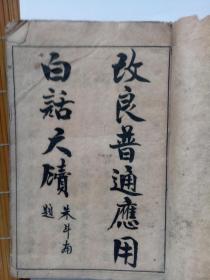 改良普通應用
白話尺牘
朱斗南
題